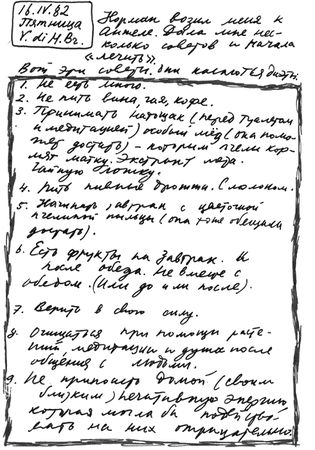 16.IV.82
Пятница
V. di M. Bz.
Нерман возил меня к
Анжеле. Дала мне нес-
колько советов и начала
«лечить».
Вот эти советы. Они касаются диэты.
1. Не есть много.
2. Не пить вина, чая, кофе.
3. Принимать натощак (перед туалетом
и медитацией) особый мёд (она помо-
жет достать) – которым пчелы кор-
мят матку. Экстракт меда.
Чайную ложку.
4. Пить пивные дрожжи. С молоком.
5. Начинать завтрак с цветочной
пчелиной пыльцы (она тоже обещала
достать).
6. Есть фрукты на завтрак. И
после обеда. Не вместе с
обедом. (Или до или после).
7. Верить в свою силу.
8. Очищаться при помощи расте-
ний медитации и душа после
общения с людьми.
9. Не приносить домой (своим
близким) негативную энергию
которая могла бы подейство-
вать на них отрицательно.